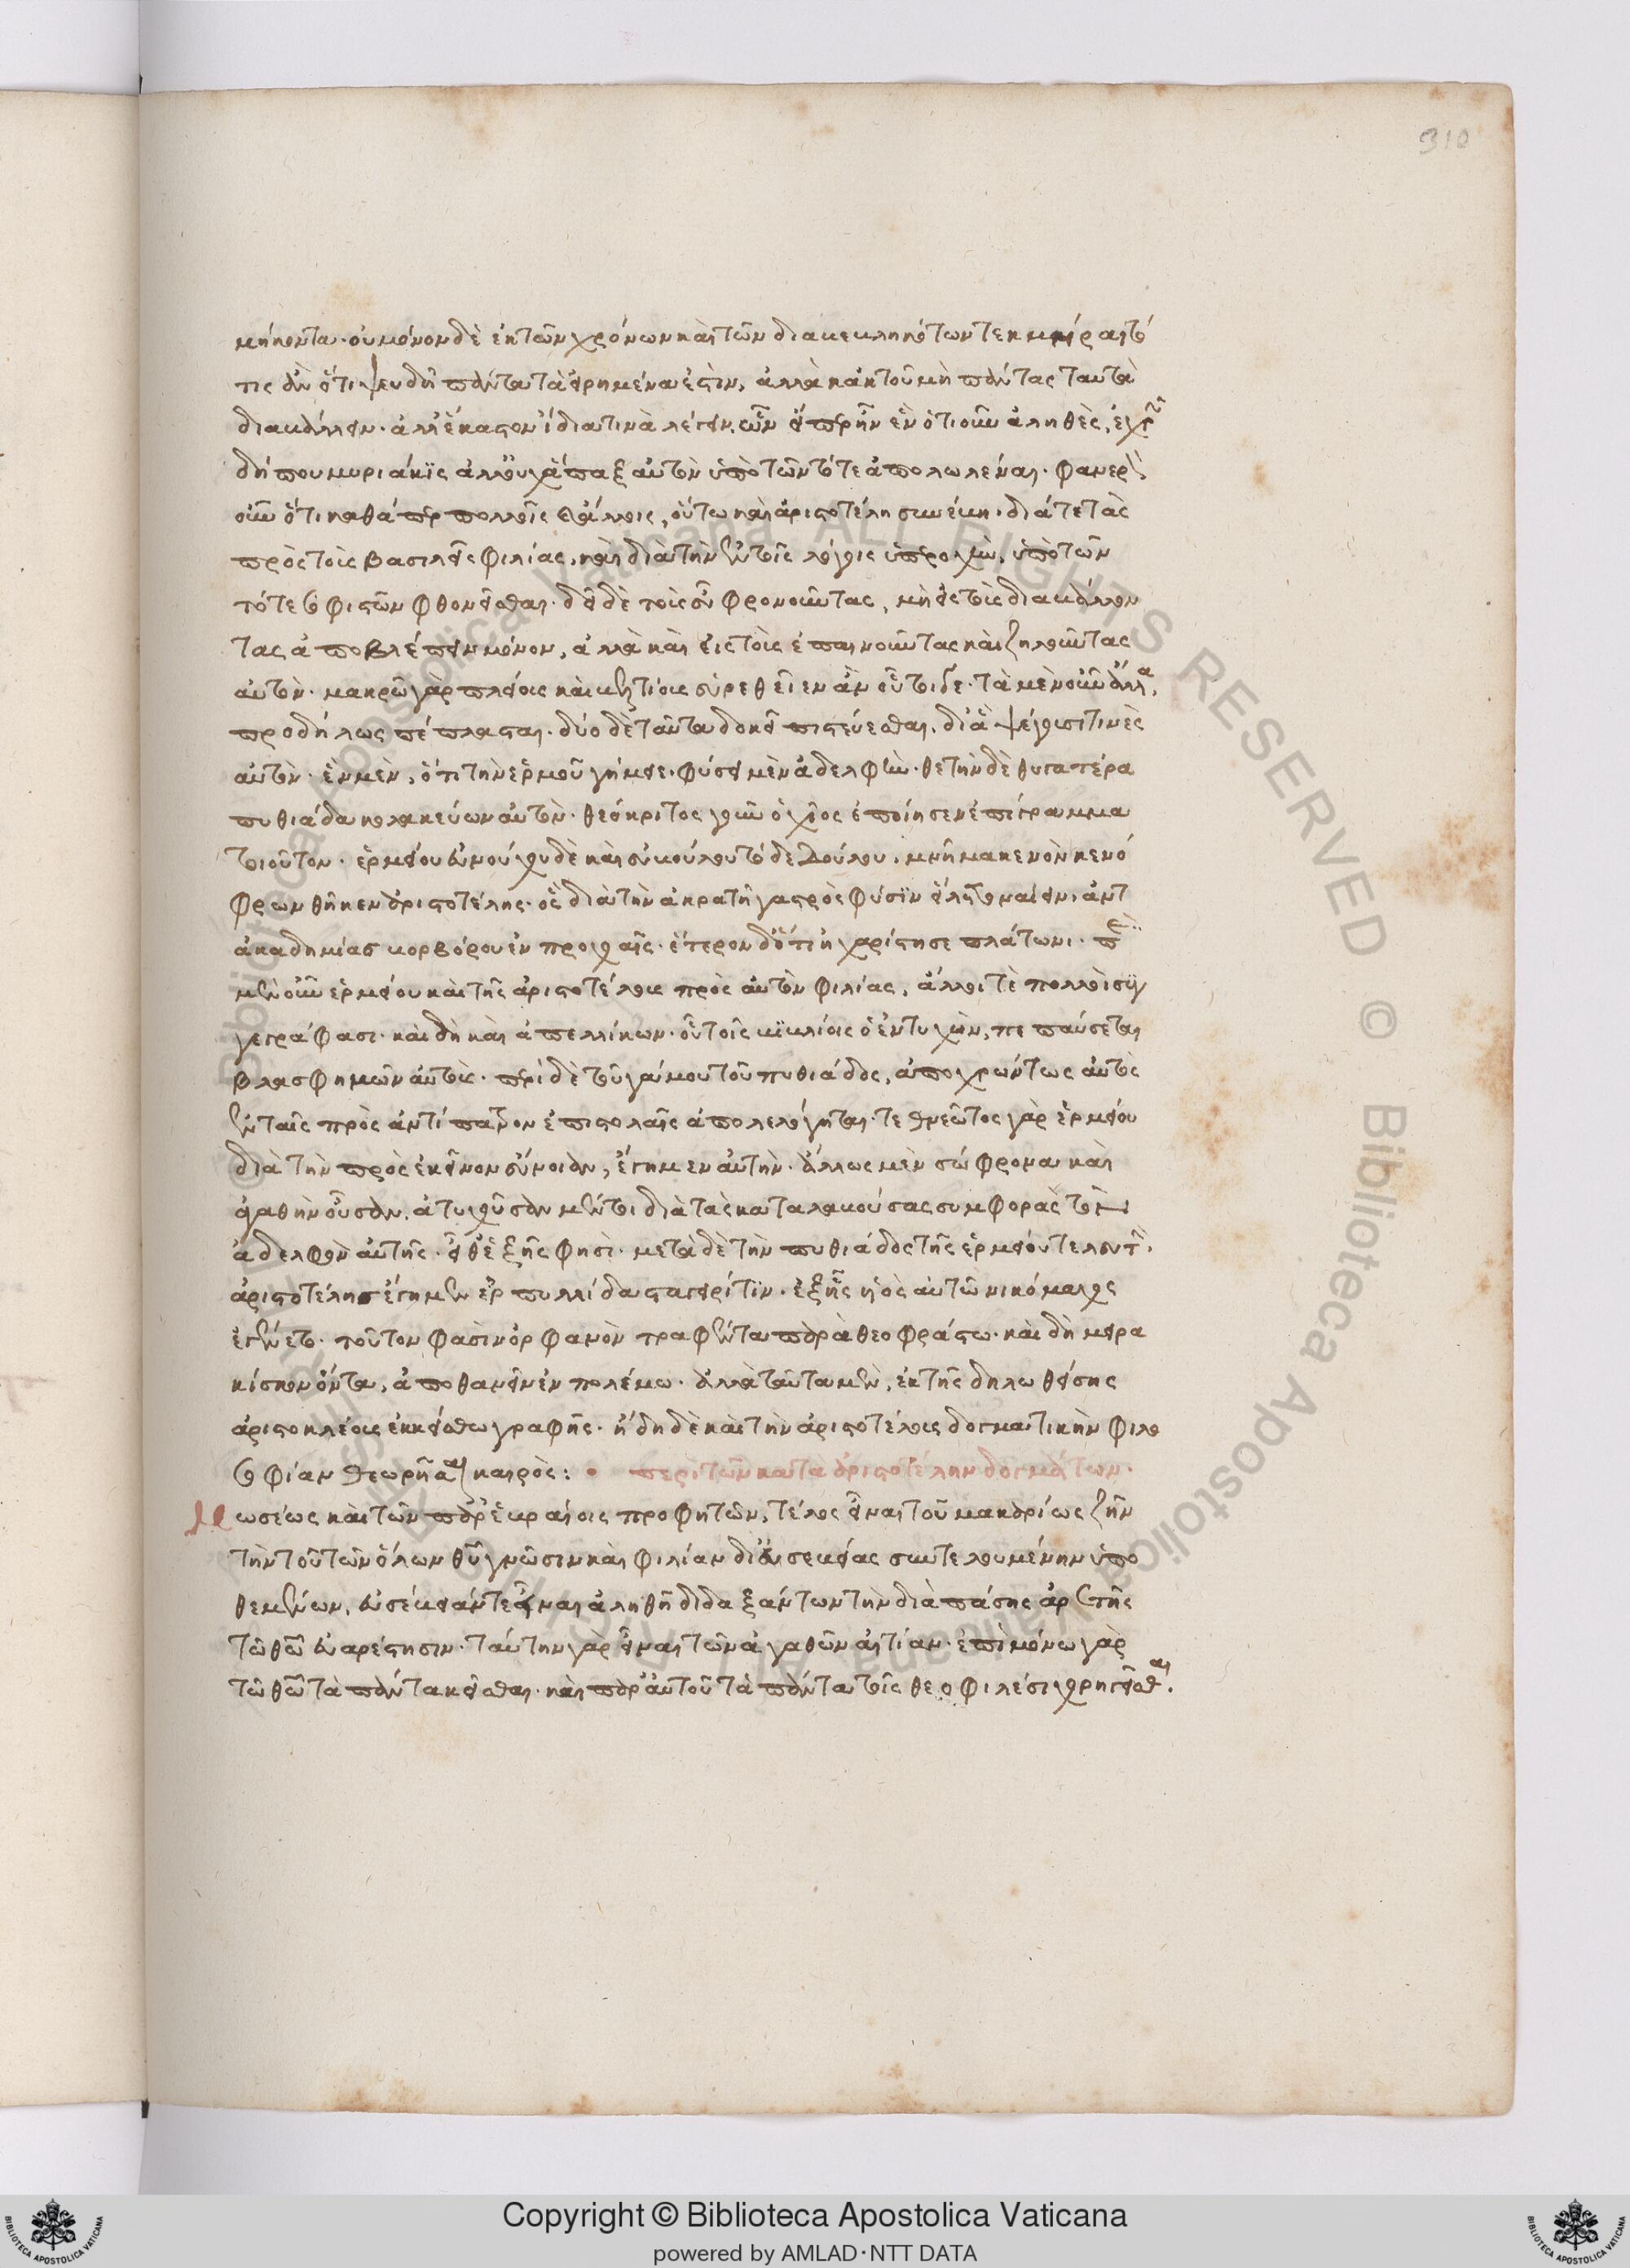 310
μήκοντα· οὐ μόνον δὲ ἐκ τῶν χρόνων καὶ τῶν διακεκληκότων τεκμήραιτό
τις ἂν ὅτι ψευδῆ πάντα τὰ εἰρημένα ἐστὶν, ἀλλὰ κἀκ τοῦ μὴ πάντας ταυτὰ
διαβάλλειν· ἀλλ' ἕκαστον ἴδια τινὰ λέγειν. ὧν εἴπερ ἦν ἓν ὁτιοῦν ἀληθὲς, ἐχρῆν
δήπου μυριάκις ἀλλ' οὐχ ἅπαξ αὐτὸν ὑπὸ τῶν τότε ἀπολωλέναι· φανερὸν
οὖν ὅτι καθάπερ πολλοῖς ἄλλοις, οὕτω καὶ ἀριστοτέλη συνέβη· διά τε τὰς
πρὸς τοὺς βασιλεῖς φιλίας, καὶ διὰ τὴν ἐν τοῖς λόγοις ὑπεροχὴν, ὑπὸ τῶν
τότε σοφιστῶν φθονεῖσθαι· δεῖ δὲ τοὺς εὖ φρονοῦντας, μὴ εἰς τοὺς διαβάλλον
τας ἀποβλέπειν μόνον, ἀλλὰ καὶ εἰς τοὺς ἐπαινοῦντας καὶ ζηλοῦντας
αὐτὸν· μακρῷ γὰρ πλείους καὶ βελτίους εὑρεθεῖεν ἂν οὗτοι δε· τὰ μὲν οὖν ἄλλα,
προδήλως πέπλασται· δύο δὲ ταῦτα δοκεῖ πιστεύεσθαι. δι' ἃ ψέγουσί τινὲς
αὐτὸν· ἓν μὲν, ὅτι τὴν ἑρμοῦ γήμειε· φύσει μὲν ἀδελφὴν· θετὴν δὲ θυγατέρα
πυθιάδα κολακεύων αὐτὸν· θεόκριτος γοῦν ὁ χῖος ἐποίησεν ἐπίγραμμα
τοιοῦτον· ἑρμείου εὐνούχου δὲ καὶ εὐβούλου τόδε δούλου. μνῆμα κενὸν κενό
φρων θῆκεν ἀριστοτέλης· ὃς διὰ τὴν ἀκρατῆ γαστρὸς φύσιν εἵλετο ναίειν. ἀντ
ἀκαδημίας βορβόρου ἐν προχοαῖς· ἕτερον δ' ὅτι ἠχαρίστησε πλάτωνι· περὶ
μὲν οὖν ἑρμείου καὶ τῆς ἀριστοτέλους πρὸς αὐτὸν φιλίας, ἄλλοι τὲ πολλοὶ συγ
γεγράφασι· καὶ δὴ καὶ ἀπελλίκων· οὗ τοῖς βιβλίοις ὁ ἐντυχὼν, πεπαύσεται
βλασφημῶν αὐτοὺς· περὶ δὲ τοῦ γάμου τοῦ πυθιάδος, ἀποχρώντως αὐτὸς
ἐν ταῖς πρὸς ἀντίπατρον ἐπιστολαῖς ἀπολελόγηται· τεθνεῶτος γὰρ ἑρμείου
διὰ τὴν πρὸς ἐκεῖνον εὔνοιαν, ἔγημεν αὐτὴν· ἄλλως μὲν σώφρονα καὶ
ἀγαθὴν οὖσαν. ἀτυχοῦσαν μέντοι διὰ τὰς καταλαβούσας συμφορὰς τὸν
ἀδελφὸν αὐτῆς· εἶθ' ἑξῆς φησὶ· μετὰ δὲ τὴν πυθιάδος τῆς ἑρμείου τελευτὴν.
ἀριστοτέλης ἔγημεν ἑρπυλλίδα σταγειρίτιν· ἐξ ἧς υἱὸς αὐτῷ νικόμαχος
ἐγένετο· τοῦτον φασὶν ὀρφανὸν τραφέντα παρὰ θεοφράστω· καὶ δὴ μειρα
κίσκον ὄντα, ἀποθανεῖν ἐν πολέμω· ἀλλὰ ταῦτα μὲν, ἐκ τῆς δηλωθείσης
ἀριστοκλέους ἐκκείσθω γραφῆς· ἤδη δὲ καὶ τὴν ἀριστοτέλους δογματικὴν φιλο
σοφίαν θεωρῆσαι καιρὸς: • περὶ τῶν κατὰ ἀριστοτέλην δογμάτων·
Μωσέως καὶ τῶν παρ' ἑβραίοις προφητῶν, τέλος εἶναι τοῦ μακαρίως ζῆν
τὴν τοῦ τῶν ὅλων θεοῦ γνῶσιν καὶ φιλίαν δι' εὐσεβείας συντελουμένην ὑπο
θεμένων, εὐσέβειάν τε εἶναι ἀληθῆ διδαξάντων τὴν διὰ πάσης ἀρετῆς
τῷ θεῷ εὐαρέστησιν· ταύτην γὰρ εἶναι τῶν ἀγαθῶν αἰτίαν· ἐπὶ μόνω γὰρ
τῷ θεῷ τὰ πάντα κεῖσθαι· καὶ παρ' αὐτοῦ τὰ πάντα τοῖς θεοφιλέσι χορηγεῖσθαι.
Copyright © Biblioteca Apostolica Vaticana
powered by AMLAD·NTT DATA